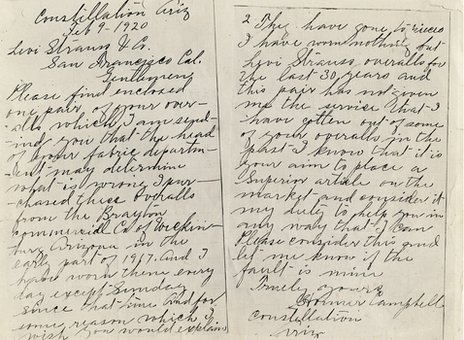 Constellation Ariz
Feb 9 - 1920
Levi Strauss & Co.
San Francisco Cal.
Gentlemen;
Please find enclosed
one pair of your over-
alls which I am send-
ing you that the head
of your fabric departm-
ent may determine
what is wrong I pur-
chased these overalls
from the Brayton
commercial Co of Wicken-
burg Arizona in the
early part of 1917. and I
have worn them every
day except Sunday
since that time and for
some reason which I
wish you would explain
2 They have gone to pieces
I have worn nothing but
Levi Strauss overalls for
the last 30 years and
this pair has not given
me the service that I
have gotten out of some
of your overalls in the
past I know that it is
your aim to place a
superior article on the
market and consider it
my duty to help you in
any way that I can
Please consider this and
let me know if the
fault is mine
Truely yours
Homer Campbell
Constellation
Ariz